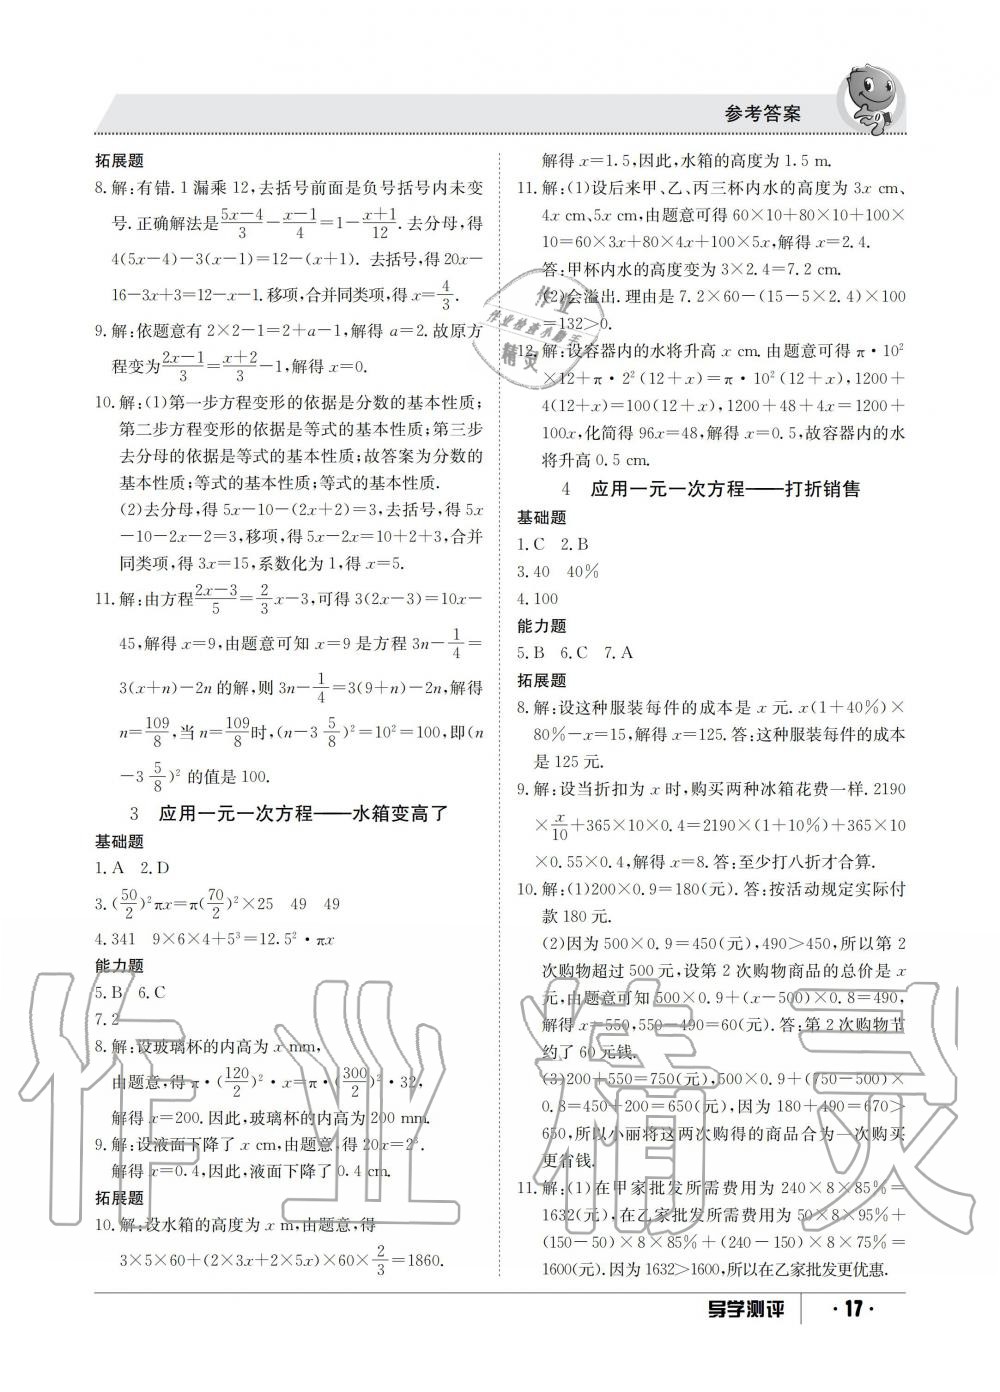 参考答案
拓展题
8. 解:有错. 1 漏乘 12,去括号前面是负号括号内未变
号. 正确解法是 (5x-4)/3 - (x-1)/4 = 1 - (x+1)/12 . 去分母,得
4(5x-4)-3(x-1)=12-(x+1). 去括号,得 20x-
16-3x+3=12-x-1. 移项,合并同类项,得 x=4/3.
9. 解:依题意有 2×2-1=2+a-1,解得 a=2. 故原方
程变为 (2x-1)/3 = (x+2)/3 -1,解得 x=0.
10. 解:(1)第一步方程变形的依据是分数的基本性质;
第二步方程变形的依据是等式的基本性质;第三步
去分母的依据是等式的基本性质;故答案为分数的
基本性质;等式的基本性质;等式的基本性质.
(2)去分母,得 5x-10-(2x+2)=3,去括号,得 5x
-10-2x-2=3,移项,得 5x-2x=10+2+3,合并
同类项,得 3x=15,系数化为 1,得 x=5.
11. 解:由方程 (2x-3)/5 = 2/3 x-3,可得 3(2x-3)=10x-
45,解得 x=9,由题意可知 x=9 是方程 3n-1/4=
3(x+n)-2n 的解,则 3n-1/4=3(9+n)-2n,解得
n=109/8,当 n=109/8 时,(n-3 5/8)²=10²=100,即(n
-3 5/8)² 的值是 100.
3 应用一元一次方程——水箱变高了
基础题
1. A 2. D
3. (50/2)²πx=π(70/2)²×25 49 49
4. 341 9×6×4+5³=12.5²·πx
能力题
5. B 6. C
7. 2
8. 解:设玻璃杯的内高为 x mm,
由题意,得 π·(120/2)²·x=π·(300/2)²·32,
解得 x=200. 因此,玻璃杯的内高为 200 mm.
9. 解:设液面下降了 x cm,由题意,得 20x=2³.
解得 x=0.4,因此,液面下降了 0.4 cm.
拓展题
10. 解:设水箱的高度为 x m,由题意,得
3×5×60+(2×3x+2×5x)×60×2/3=1860.
解得 x=1.5,因此,水箱的高度为 1.5 m.
11. 解:(1)设后来甲、乙、丙三杯内水的高度为 3x cm、
4x cm、5x cm,由题意可得 60×10+80×10+100×
10=60×3x+80×4x+100×5x,解得 x=2.4.
答:甲杯内水的高度变为 3×2.4=7.2 cm.
(2)会溢出. 理由是 7.2×60-(15-5×2.4)×100
=132>0.
12. 解:设容器内的水将升高 x cm. 由题意可得 π·10²
×12+π·2²(12+x)=π·10²(12+x),1200+
4(12+x)=100(12+x),1200+48+4x=1200+
100x,化简得 96x=48,解得 x=0.5,故容器内的水
将升高 0.5 cm.
4 应用一元一次方程——打折销售
基础题
1. C 2. B
3. 40 40%
4. 100
能力题
5. B 6. C 7. A
拓展题
8. 解:设这种服装每件的成本是 x 元. x(1+40%)×
80%-x=15,解得 x=125. 答:这种服装每件的成本
是 125 元.
9. 解:设当折扣为 x 时,购买两种冰箱花费一样. 2190
×x/10+365×10×0.4=2190×(1+10%)+365×10
×0.55×0.4,解得 x=8. 答:至少打八折才合算.
10. 解:(1)200×0.9=180(元). 答:按活动规定实际付
款 180 元.
(2)因为 500×0.9=450(元),490>450,所以第 2
次购物超过 500 元,设第 2 次购物商品的总价是 x
元,由题意可知 500×0.9+(x-500)×0.8=490,
解得 x=550,550-490=60(元). 答:第 2 次购物节
约了 60 元钱.
(3)200+550=750(元),500×0.9+(750-500)×
0.8=450+200=650(元),因为 180+490=670>
650,所以小丽将这两次购得的商品合为一次购买
更省钱.
11. 解:(1)在甲家批发所需费用为 240×8×85%=
1632(元),在乙家批发所需费用为 50×8×95%+
(150-50)×8×85%+(240-150)×8×75%=
1600(元). 因为 1632>1600,所以在乙家批发更优惠.
导学测评 ·17·
作业
作业检查小助手
精灵
作业精灵